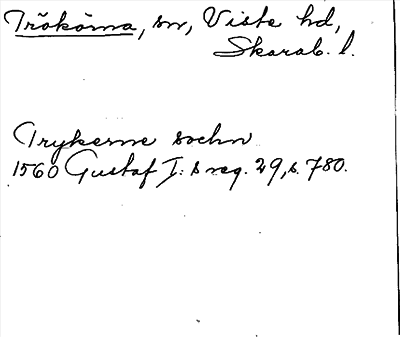 Trökörna, sn, Viste hd,
Skarab. l.
Trykerne sochn
1560 Gustaf I:s reg. 29, s. 780.